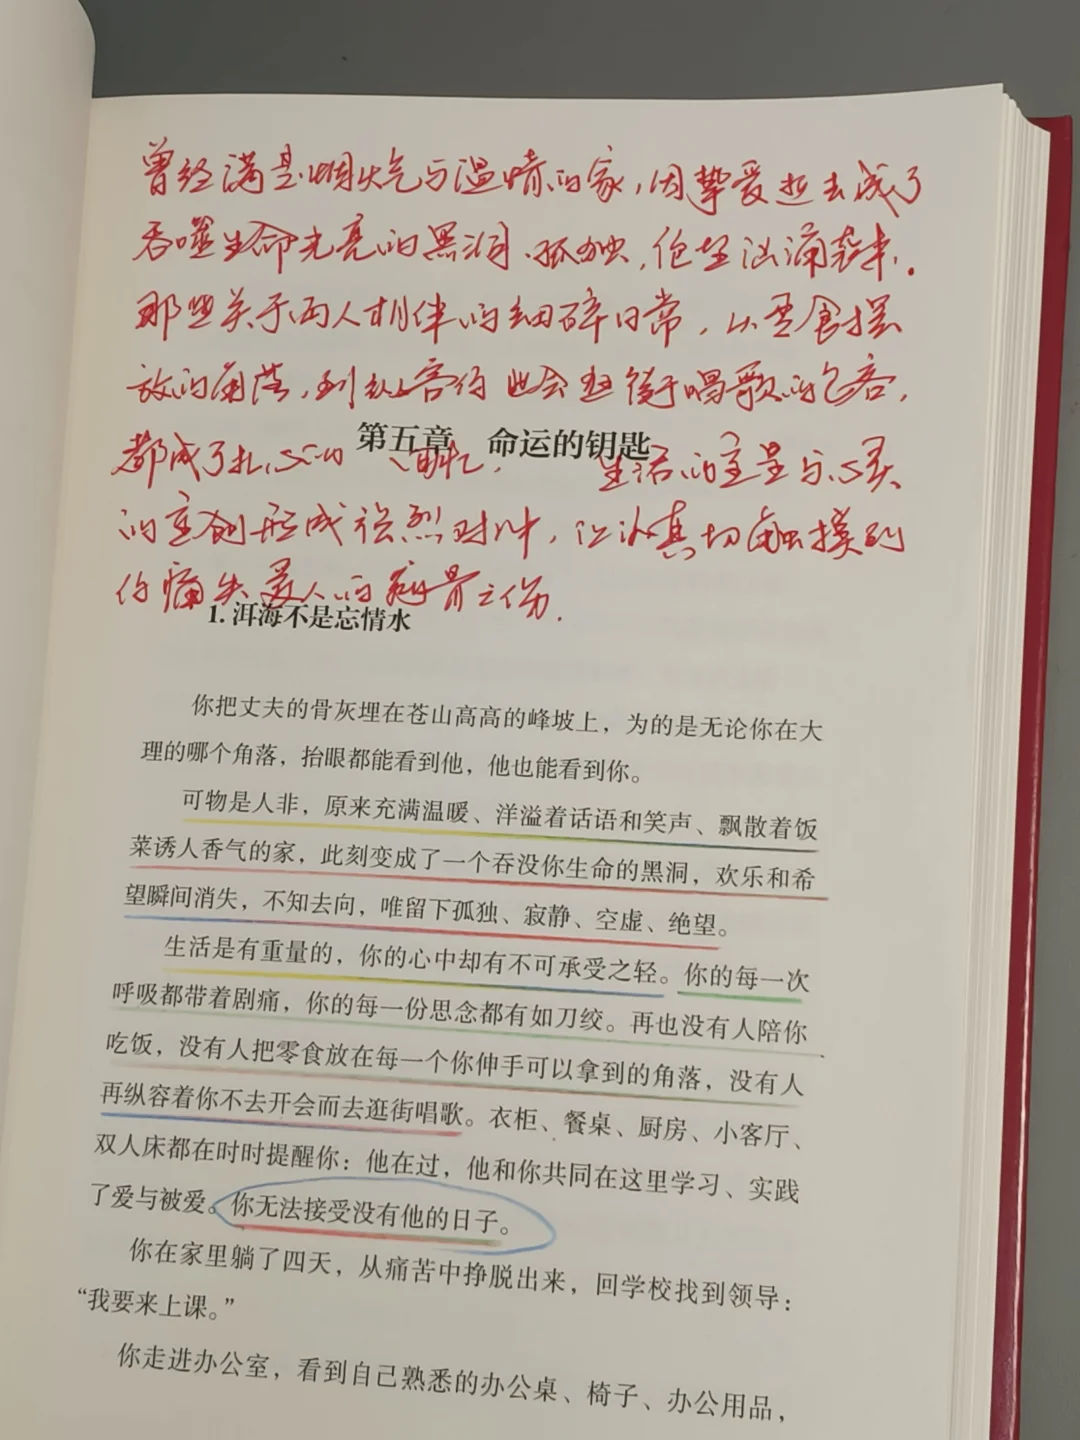 曾经满是烟火气与温情的家，因挚爱逝去成了
吞噬生命光亮的黑洞、孤独、绝望汹涌袭来.
那些关于两人相伴的细碎日常，从零食摆
放的角落，到纵容你逃会逛街唱歌的包容，
都成了扎心的回忆. 生活的重量与心灵
的重创形成强烈对冲，让认真切触摸到
你痛失爱人的彻骨之伤.
第五章 命运的钥匙
1. 洱海不是忘情水
你把丈夫的骨灰埋在苍山高高的峰坡上，为的是无论你在大
理的哪个角落，抬眼都能看到他，他也能看到你。
可物是人非，原来充满温暖、洋溢着话语和笑声、飘散着饭
菜诱人香气的家，此刻变成了一个吞没你生命的黑洞，欢乐和希
望瞬间消失，不知去向，唯留下孤独、寂静、空虚、绝望。
生活是有重量的，你的心中却有不可承受之轻。你的每一次
呼吸都带着剧痛，你的每一份思念都有如刀绞。再也没有人陪你
吃饭，没有人把零食放在每一个你伸手可以拿到的角落，没有人
再纵容着你不去开会而去逛街唱歌。衣柜、餐桌、厨房、小客厅、
双人床都在时时提醒你：他在过，他和你共同在这里学习、实践
了爱与被爱。你无法接受没有他的日子。
你在家里躺了四天，从痛苦中挣脱出来，回学校找到领导：
“我要来上课。”
你走进办公室，看到自己熟悉的办公桌、椅子、办公用品，